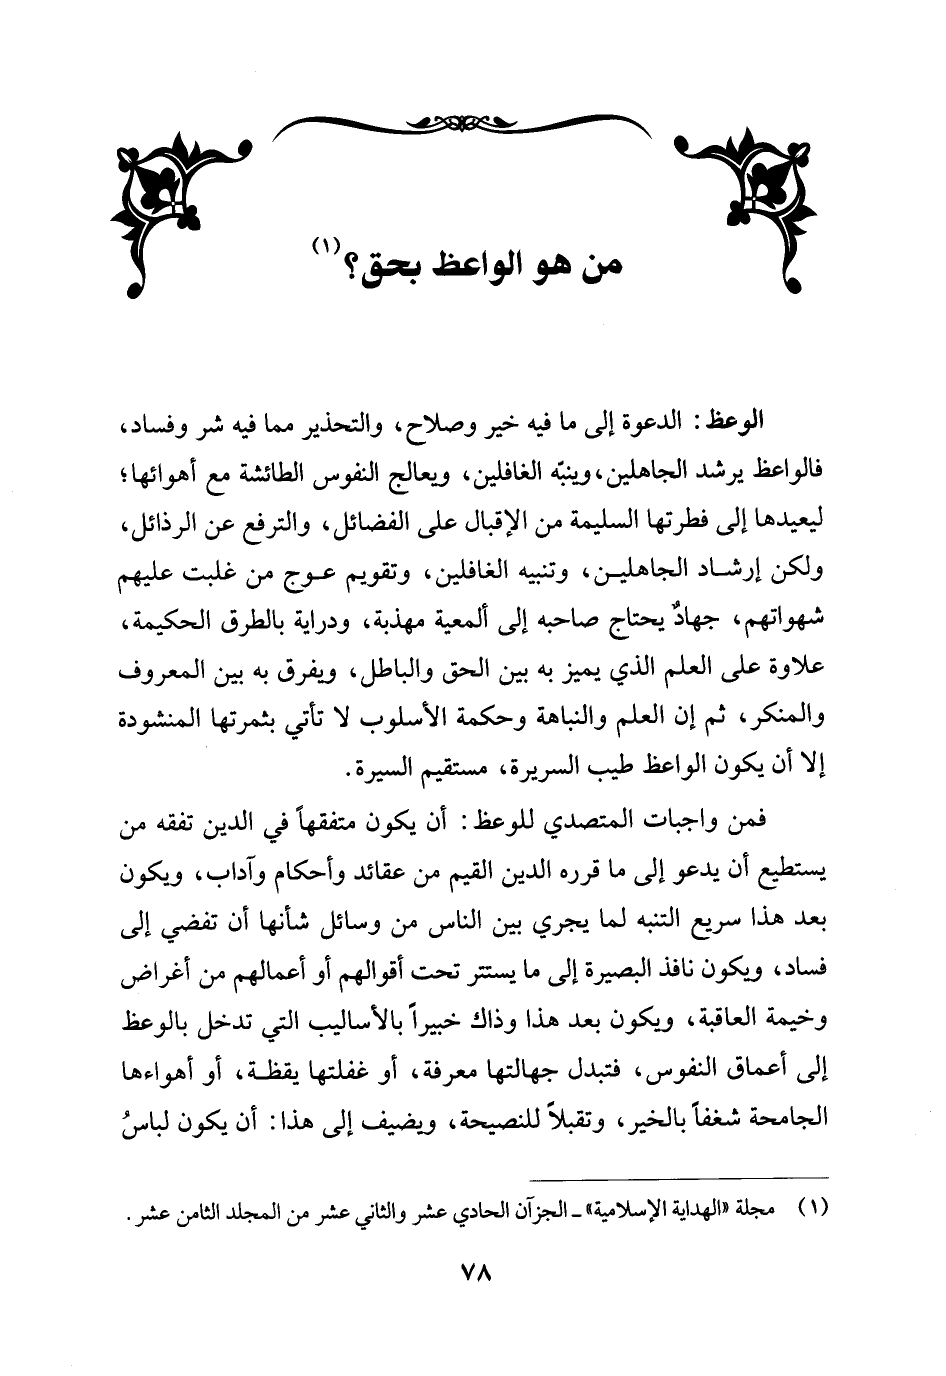 من هو الواعظ بحق؟(١)
الوعظ: الدعوة إلى ما فيه خير وصلاح، والتحذير مما فيه شر وفساد،
فالواعظ يرشد الجاهلين، وينبّه الغافلين، ويعالج النفوس الطائشة مع أهوائها؛
ليعيدها إلى فطرتها السليمة من الإقبال على الفضائل، والترفع عن الرذائل،
ولكن إرشاد الجاهلين، وتنبيه الغافلين، وتقويم عوج من غلبت عليهم
شهواتهم، جهادٌ يحتاج صاحبه إلى ألمعية مهذبة، ودراية بالطرق الحكيمة،
علاوة على العلم الذي يميز به بين الحق والباطل، ويفرق به بين المعروف
والمنكر، ثم إن العلم والنباهة وحكمة الأسلوب لا تأتي بثمرتها المنشودة
إلا أن يكون الواعظ طيب السريرة، مستقيم السيرة.
فمن واجبات المتصدي للوعظ: أن يكون متفقهاً في الدين تفقه من
يستطيع أن يدعو إلى ما قرره الدين القيم من عقائد وأحكام وآداب، ويكون
بعد هذا سريع التنبه لما يجري بين الناس من وسائل شأنها أن تفضي إلى
فساد، ويكون نافذ البصيرة إلى ما يستتر تحت أقوالهم أو أعمالهم من أغراض
وخيمة العاقبة، ويكون بعد هذا وذاك خبيراً بالأساليب التي تدخل بالوعظ
إلى أعماق النفوس، فتبدل جهالتها معرفة، أو غفلتها يقظة، أو أهواءها
الجامحة شغفاً بالخير، وتقبلاً للنصيحة، ويضيف إلى هذا: أن يكون لباسُ
(١) مجلة «الهداية الإسلامية» ـ الجزآن الحادي عشر والثاني عشر من المجلد الثامن عشر.
٧٨